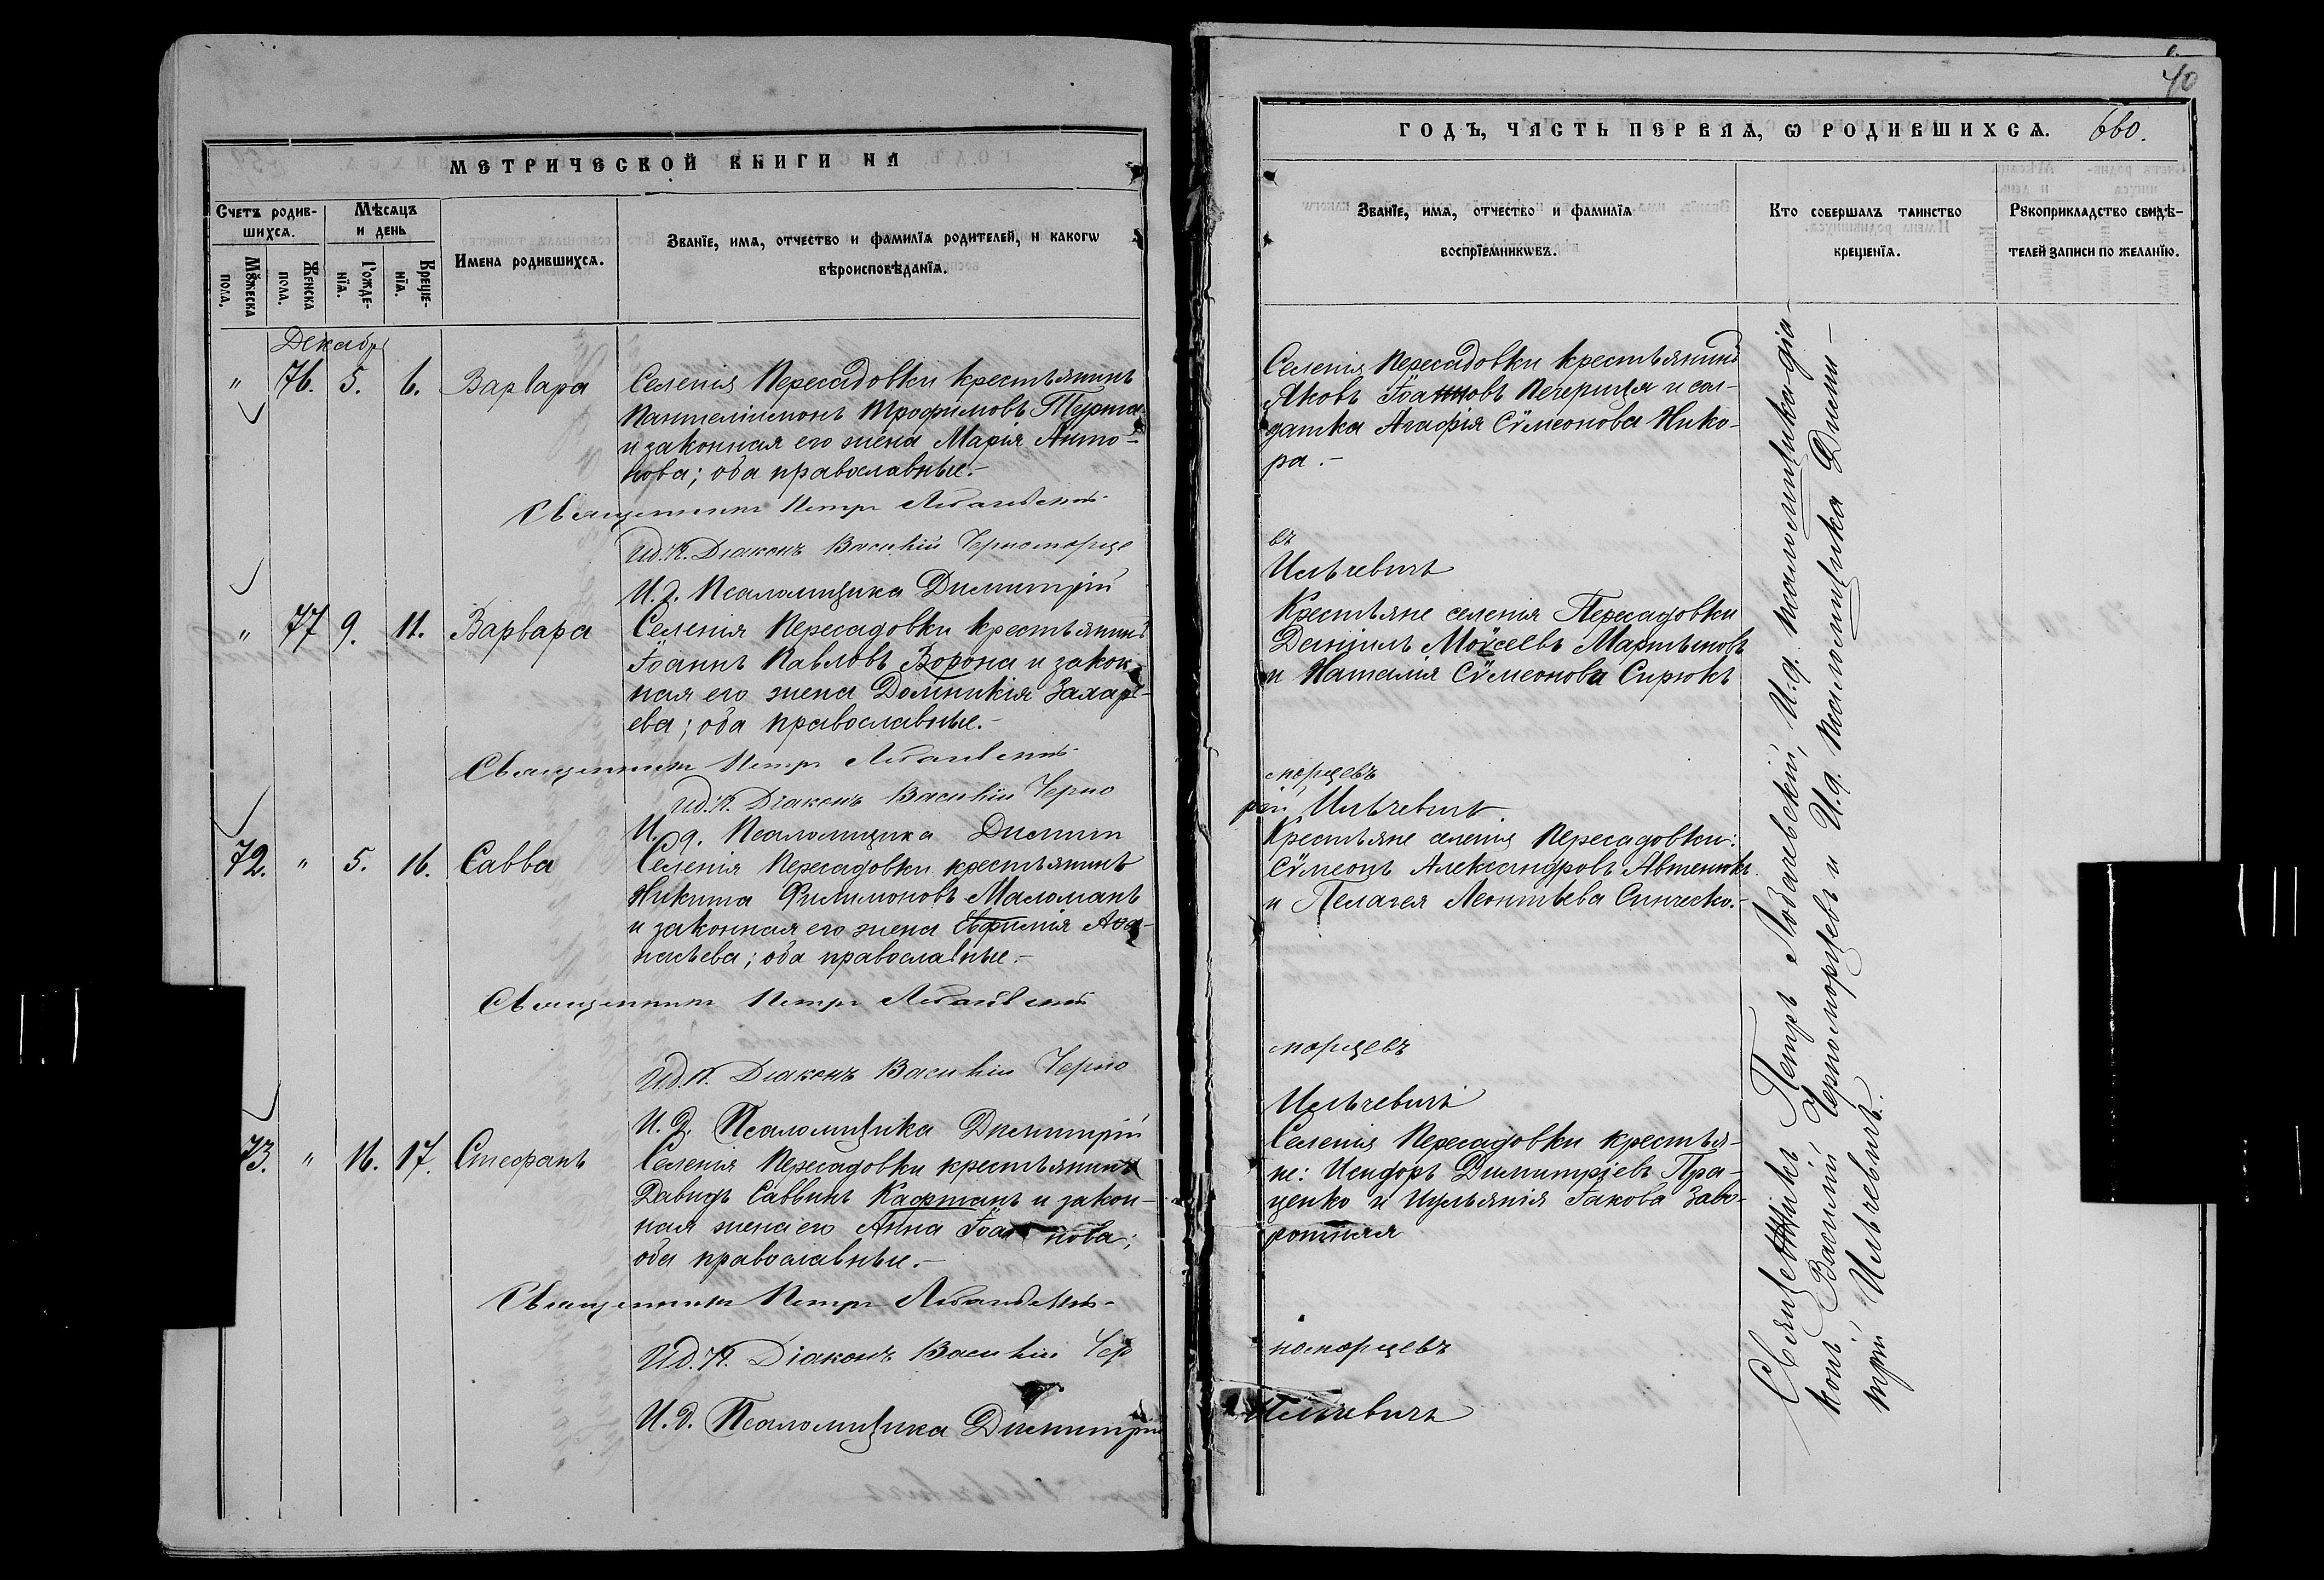 МЕТРИЧЕСКОЙ КНИГИ НА
Счетъ родив-
шихсѧ.
Мѣсѧцъ
и день
Мꙋжеска
пола.
Женска
пола.
Рожде-
нїѧ.
Креще-
нїѧ.
Имена родившихсѧ.
Званїе, имѧ, отчество и фамилїѧ родителей, и какогѡ
вѣроисповѣданїѧ.
Декабрь
" 76. 5. 6. Варвара
Селенія Пересадовки крестьянинъ
Пантелиймонъ Трофимовъ
и законная его жена Марія Анто-
нова; оба православные.-
Священникъ Петръ Лобачевскій
И.д. Діаконъ Василій Черноморце
И.д. Псаломщика Димитрій
" 77 9. 11. Варвара
Селенія Пересадовки крестьянинъ
Іоаннъ Павловъ Ворона и закон-
ная его жена Домникія Захарі-
ева; оба православные.-
Священникъ Петръ Лобачевскій
И.д. Діаконъ Василій Черно
И.д. Псаломщика Димит
72. " 5. 16. Савва
Селенія Пересадовки крестьянинъ
Никита Филимоновъ Маломанъ
и законная его жена Евфимія Аѳа-
насьева; оба православные.-
Священникъ Петръ Лобачевскій
И.д. Діаконъ Василій Черно
И.д. Псаломщика Димитрій
73. " 16. 17. Стефанъ
Селенія Пересадовки крестьянинъ
Давидъ Саввинъ Кафтанъ и закон-
ная жена его Анна Іоан нова;
оба православные.-
Священникъ Петръ Лобачевскій
И.д. Діаконъ Василій Чер
И.д. Псаломщика Димитрій
40
ГОДЪ, ЧАСТЬ ПЕРВАЯ, Ѡ РОДИВШИХСѦ. 660.
Званїе, имѧ, отчество и фамилїѧ
воспрїемникѡвъ.
Кто совершалъ таинство
крещенїѧ.
Рꙋкоприкладство свидѣ-
телей записи по желанїю.
Селенія Пересадовки крестьянинъ
Яковъ Іоанновъ Печерица и сол-
датка Агафія Сѵмеонова Нико-
ра.-
въ
Ильчевичъ
Крестьяне селенія Пересадовки
Даніилъ Моѵсеевъ Мартыновъ
и Наталія Сѵмеонова Сирюкъ
морцевъ
рій Ильчевичъ.
Крестьяне селенія Пересадовки:
Сѵмеонъ Александровъ Автенюкъ
и Пелагея Леонтьева
морцевъ
Ильчевичъ
Селенія Пересадовки крестья-
не: Исидоръ Димитріевъ Пра-
ценко и Иульянія Іакова Заво-
ротняя
номорцевъ
Ильчевичъ
Священникъ Петръ Лобачевскій, И.д. псаломщика діа-
конъ Василій Черноморцевъ и И.д. псаломщика Дими-
трій Ильчевичъ.